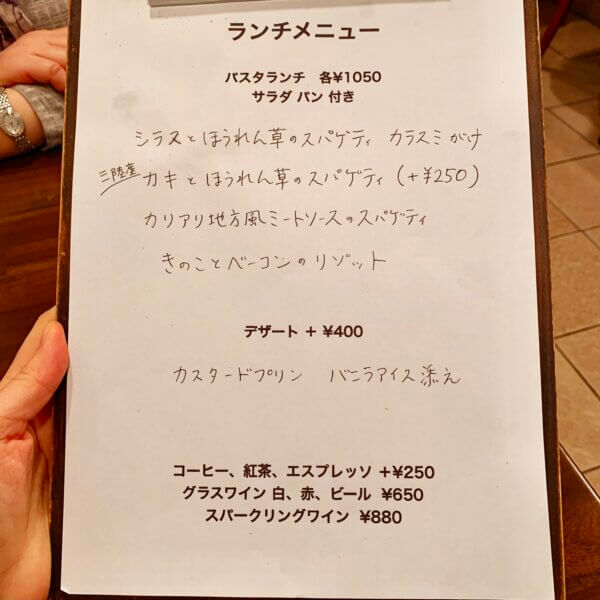 ランチメニュー
パスタランチ 各¥1050
サラダ パン 付き
シラスとほうれん草のスパゲティ カラスミがけ
三陸産 カキとほうれん草のスパゲティ (+¥250)
カリアリ地方風ミートソースのスパゲティ
きのことベーコンのリゾット
デザート + ¥400
カスタードプリン バニラアイス添え
コーヒー、紅茶、エスプレッソ +¥250
グラスワイン 白、赤、ビール ¥650
スパークリングワイン ¥880